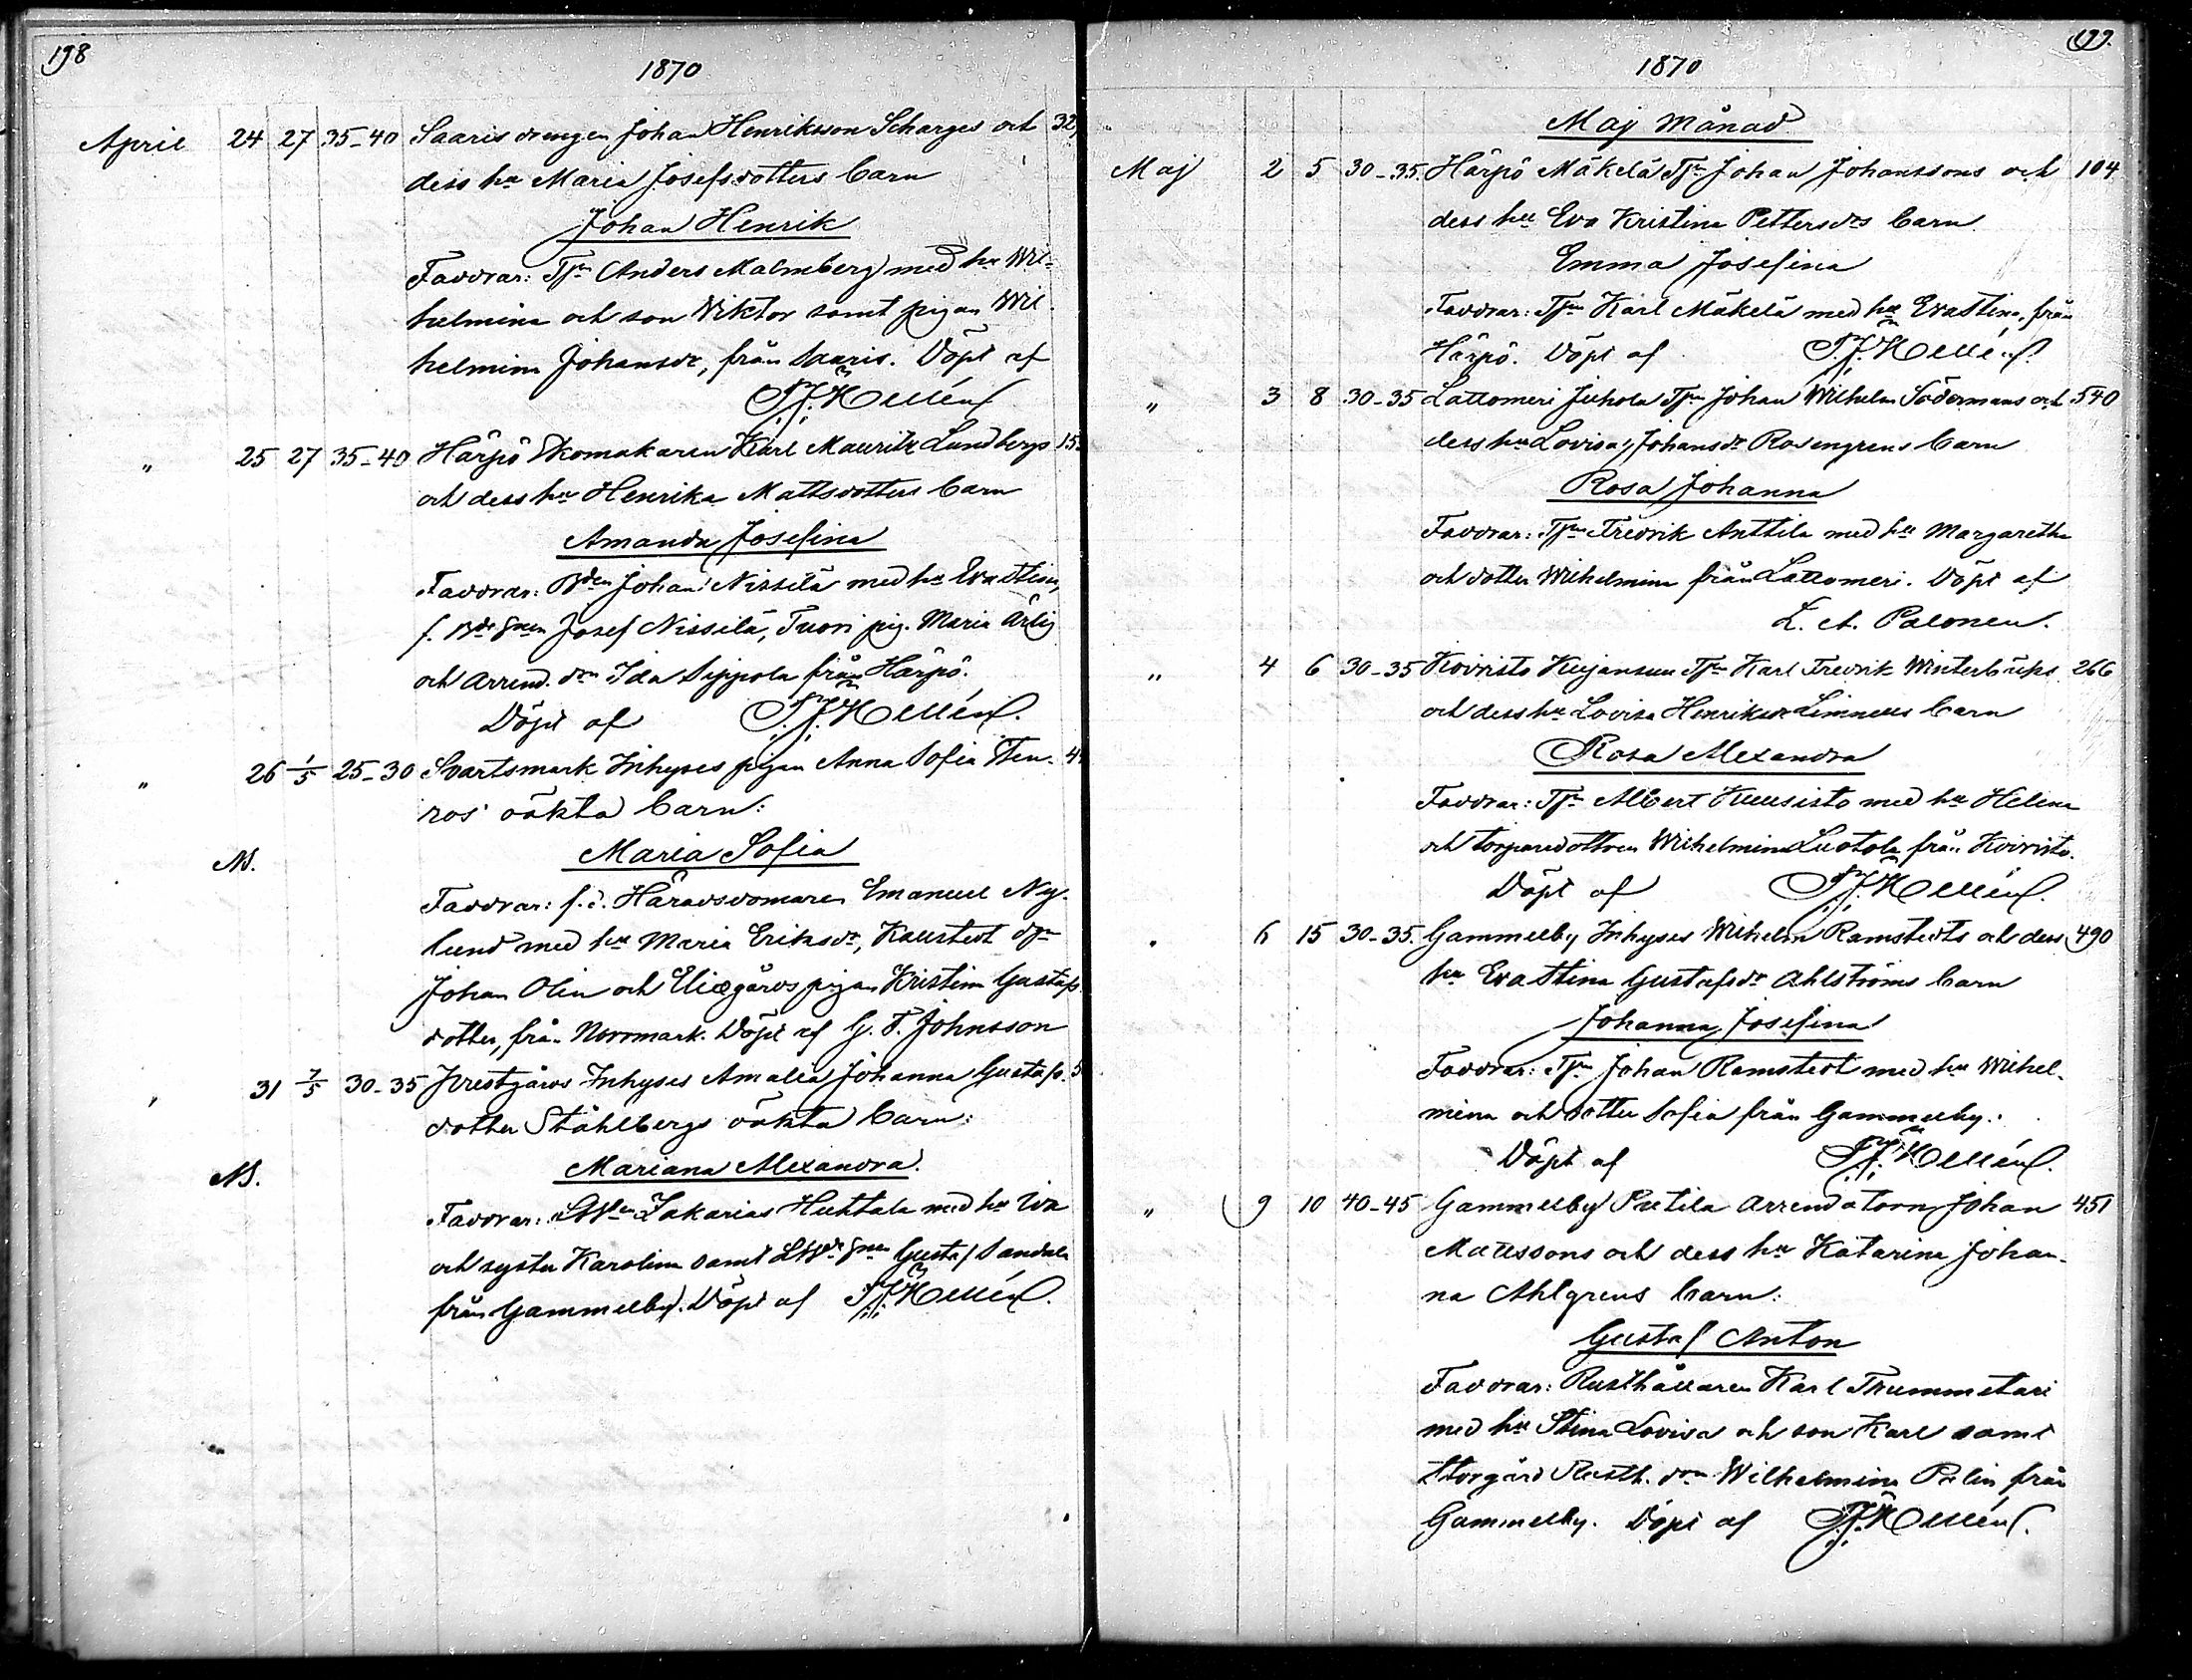 198
1870
April 24 27 35-40 Saaris drengen Johan Henriksson Scharges och 32
dess hu Maria Josefsdotters barn
Johan Henrik
Faddrar: Tpn Anders Malmberg med hu Wil-
helmina och son Viktor samt pigan Wil-
helmina Johansdr, från Saaris. Döpt af
Hellén
" 25 27 35-40 Härpö Skomakaren Karl Mauritz Lundbergs 15
och dess hu Henrika Mattsdotters barn
Amanda Josefina
Faddrar: Bden Johan Nissilä med hu Eva Stina,
f. Bde Josef Nissilä, Tuori pig. Maria Ärlig
och Arrend. dn Ida Sippola från Härpö.
Döpt af Hellén.
" 26 1/5 25-30 Svartsmark Inhyses pigan Anna Sofia Sten- 4
ros' oäkta barn:
N. Maria Sofia
Faddrar: f.d. Häradsdomaren Emanuel Ny-
lund med hu Maria Eriksdr, Kallstedt
Johan Olin och pigan Kristina Gustafs-
dotter, från Norrmark. Döpt af G. F. Johnsson
" 31 7/5 30-35 Prestgårds Inhyses Amalia Johanna Gustafs- 5
dotter Ståhlbergs oäkta barn:
N. Mariana Alexandra.
Faddrar: Zakarias Huhtala med hu Eva
och syster Karolina samt Gustaf Sandell
från Gammelby. Döpt af Hellén.
199.
1870
Maj Månad
Maj 2 5 30-35. Härpö Mäkelä Tpn Johan Johanssons och 104
dess hu Eva Kristina Pettersdrs barn
Emma Josefina
Faddrar: Tpn Karl Mäkelä med hu Eva Stina, från
Härpö. Döpt af Hellén.
" 3 8 30-35 Lattomeri Juhola Tpn Johan Wilhelm Södermans och 540
dess hu Lovisa Johansdr Rosengrens barn
Rosa Johanna
Faddrar: Tpn Fredrik Anttila med hu Margaretha
och dotter Wilhelmina från Lattomeri. Döpt af
L. A. Palonen.
" 4 6 30-35 Koivisto Kujansuu Tpn Karl Fredrik Winterbäcks 266
och dess hu Lovisa Henriksdr Limnells barn
Rosa Alexandra
Faddrar: Tpn Albert Kuusisto med hu Helena
och torparedottren Wilhelmina Luotola från Koivisto.
Döpt af Hellén.
" 6 15 30-35. Gammelby Inhyses Wilhelm Ramstedts och dess 490
hu Eva Stina Gustafsdr Ahlströms barn
Johanna Josefina
Faddrar: Tpn Johan Ramstedt med hu Wilhel-
mina och dotter Sofia från Gammelby.
Döpt af Hellén.
" 9 10 40-45 Gammelby Prettila Arrendatorn Johan 451
Mattssons och dess hu Katarina Johan-
na Ahlgrens barn:
Gustaf Anton
Faddrar: Rusthållaren Karl Trummetari
med hu Stina Lovisa och son Karl samt
Storgård Rusth. drn Wilhelmina Pelin från
Gammelby. Döpt af Hellén.